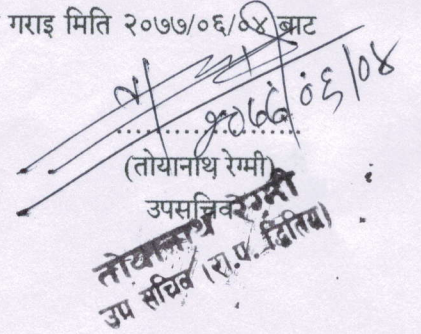 गराइ मिति २०७७/०६/०४ बाट
२०७७/०६/०४
(तोयानाथ रेग्मी)
उपसचिव
तोयानाथ रेग्मी
उप सचिव (रा.प. द्वितिय)